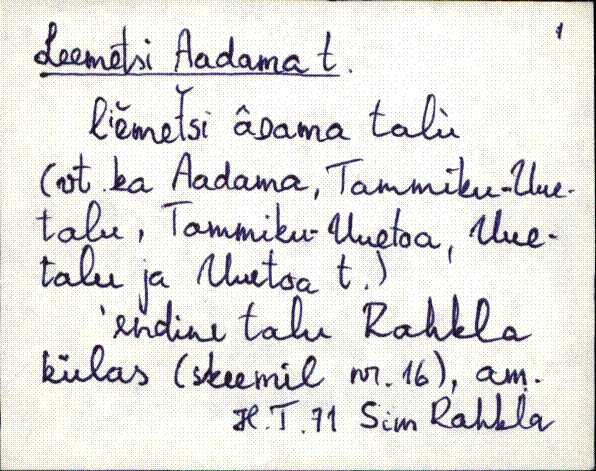 1
Leemetsi Aadama t.
li̮ĕmeť̬si âdama talù
(vt. ka Aadama, Tammiku-Uue-
talu, Tammiku-Uuetoa, Uue-
talu ja Uuetoa t.)
'endine talu Rahkla
külas (skeemil nr. 16), am.
H.T.71 Sim Rahkla